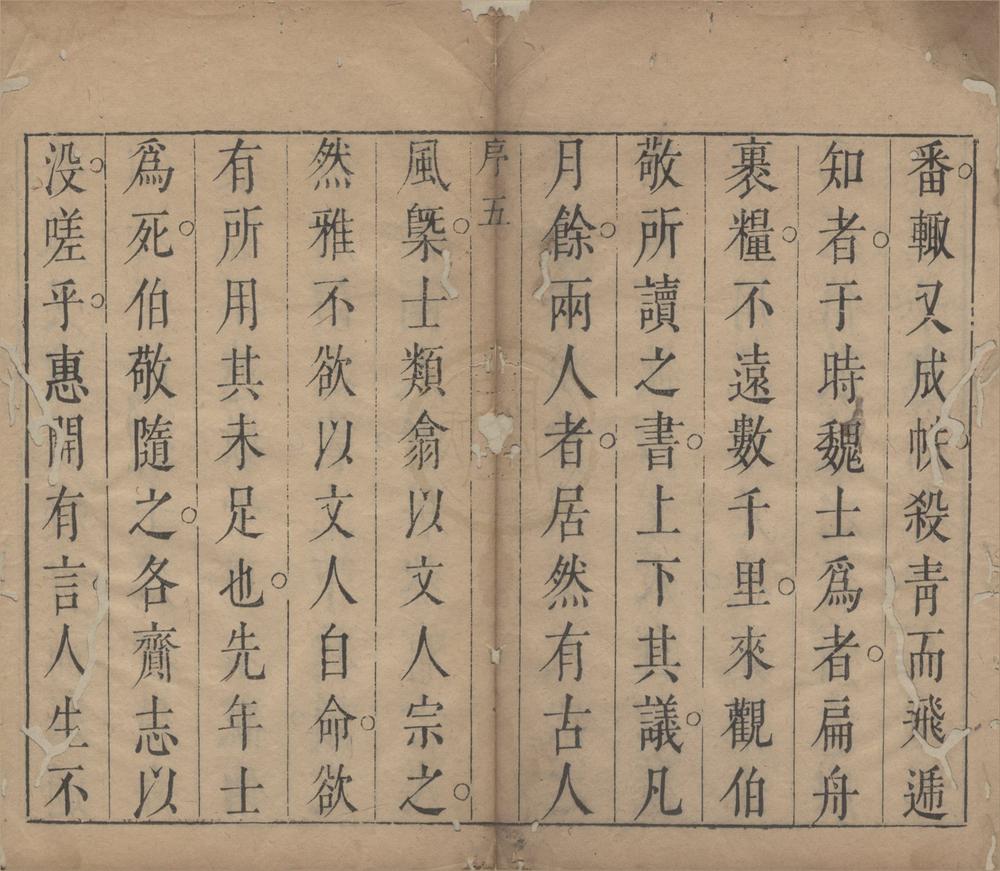 番輙又成帙殺青而飛遞
知者于時魏士爲者扁舟
裹糧不遠數千里來觀伯
敬所讀之書上下其議凡
月餘兩人者居然有古人
序五
風槩士類翕以文人宗之
然雅不欲以文人自命欲
有所用其未足也先年士
爲死伯敬隨之各齎志以
没嗟乎惠開有言人生不